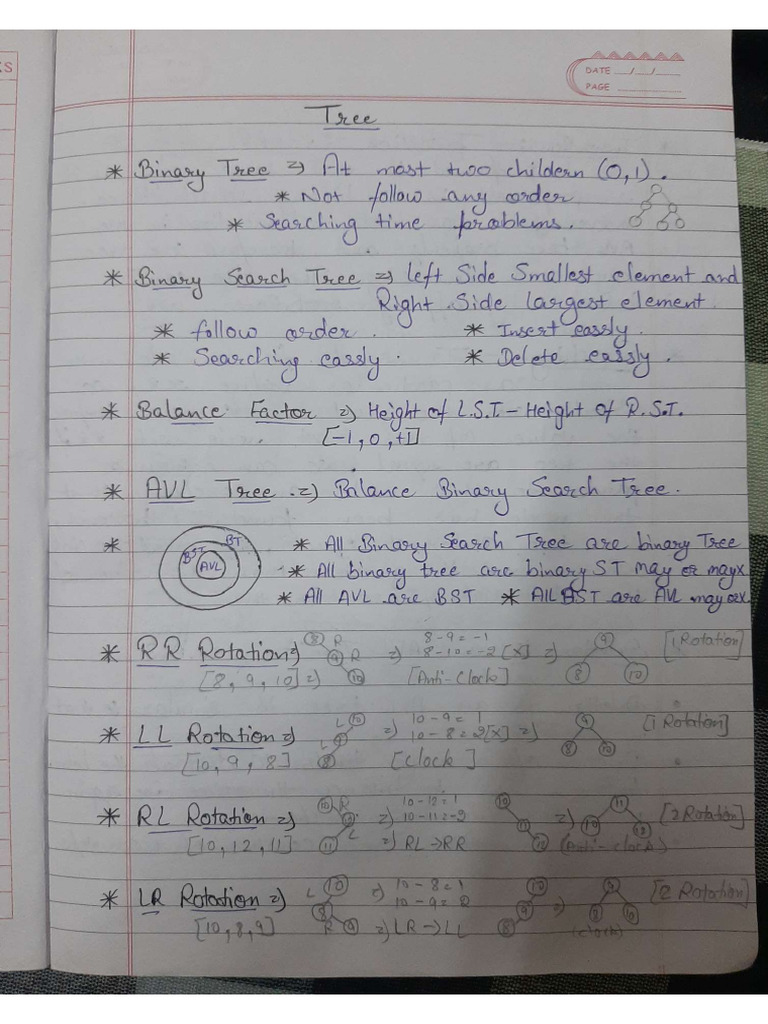 KS
DATE __/__/__
PAGE
Tree
* Binary Tree => At most two childern (0,1).
* Not follow any order
* Searching time problems.
* Binary Search Tree => left Side Smallest element and
Right Side largest element
* follow order. * Insert eassly.
* Searching eassly. * Delete eassly.
* Balance Factor => Height of L.S.T. - Height of R.S.T.
[-1, 0, +1]
* AVL Tree => Balance Binary Search Tree.
* BT BST AVL * All Binary Search Tree are binary Tree
* All binary tree are binary ST may or mayx
* All AVL are BST * All BST are AVL may orx
* RR Rotation => 8 R 9 R 10 => 8-9=-1 8-10=-2 [x] => 9 8 10 [1 Rotation]
[8, 9, 10] => [Anti-Clock]
* LL Rotation => 10 L 9 L 8 => 10-9=1 10-8=2[x] => 9 8 10 [1 Rotation]
[10, 9, 8] [Clock]
* RL Rotation => 10 R 12 L 11 => 10-12=1 10-11=-2 10 11 12 => 11 10 12 [2 Rotation]
[10, 12, 11] => RL → RR (Anti-clock)
* LR Rotation => L 10 8 R 9 => 10-8=1 10-9=2 10 9 8 => 9 8 10 [2 Rotation]
[10, 8, 9] => LR → LL (clock)